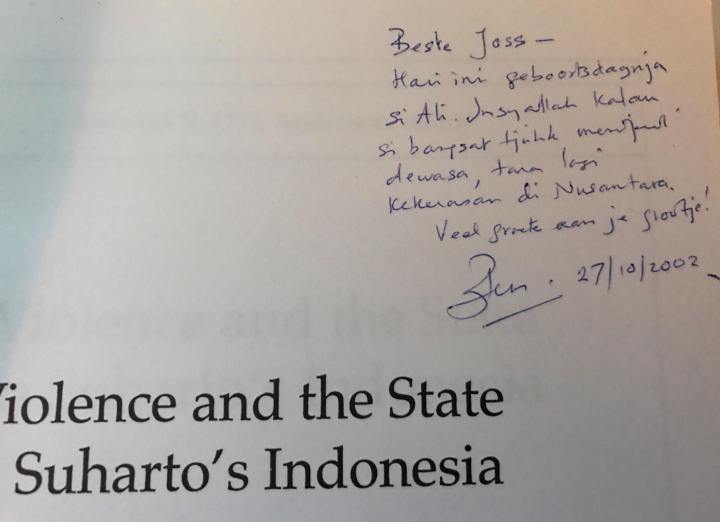 Beste Joss —
Hari ini geboortsdagnja
si Ali. Insyallah kalau
si bangsat tjilik mendjadi
dewasa, tana lagi
kekerasan di Nusantara.
Veel groete aan je grootje!
Ben. 27/10/2002
Violence and the State
Suharto's Indonesia